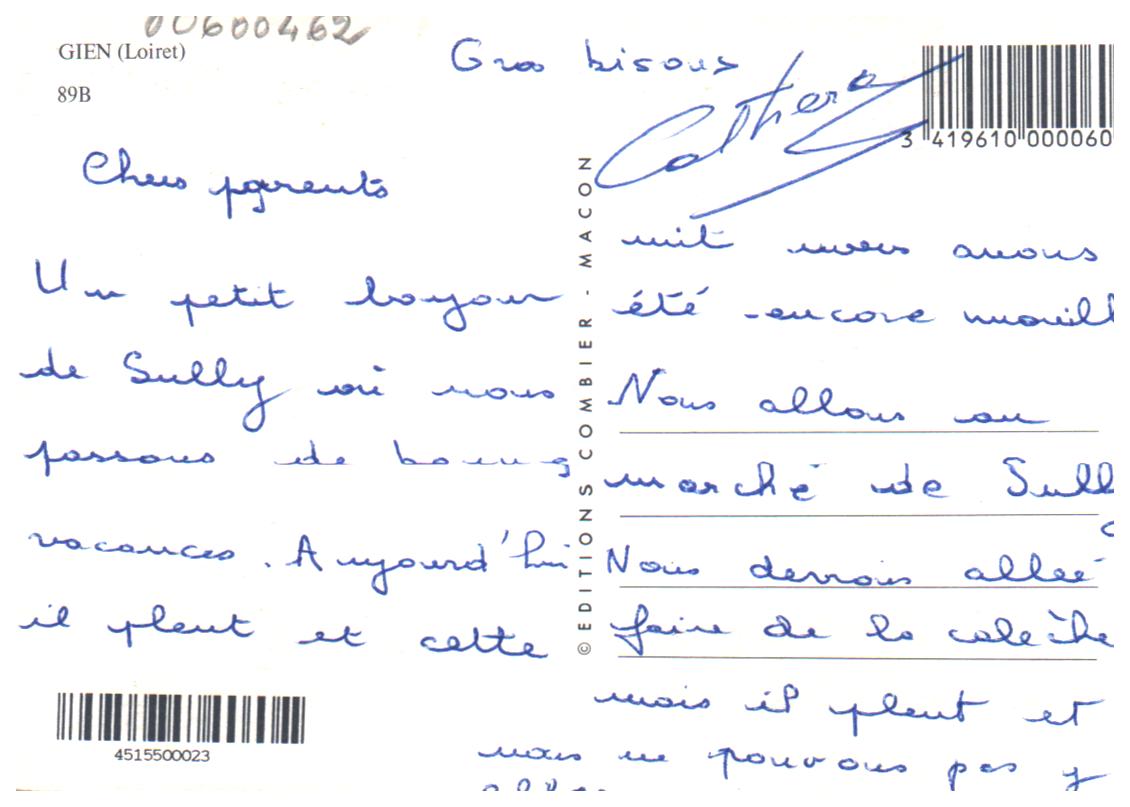 00600462
GIEN (Loiret)
89B
Chers parents
Un petit bonjour
de Sully où nous
passons de bonnes
vacances. Aujourd'hui
il pleut et cette
4515500023
© EDITIONS COMBIER - MACON
Gros bisous
3 419610 000060
nuit nous avons
été encore mouill
Nous allons au
marché de Sully
Nous devrions aller
faire de la calèche
mais il pleut et
nous ne pouvons pas y